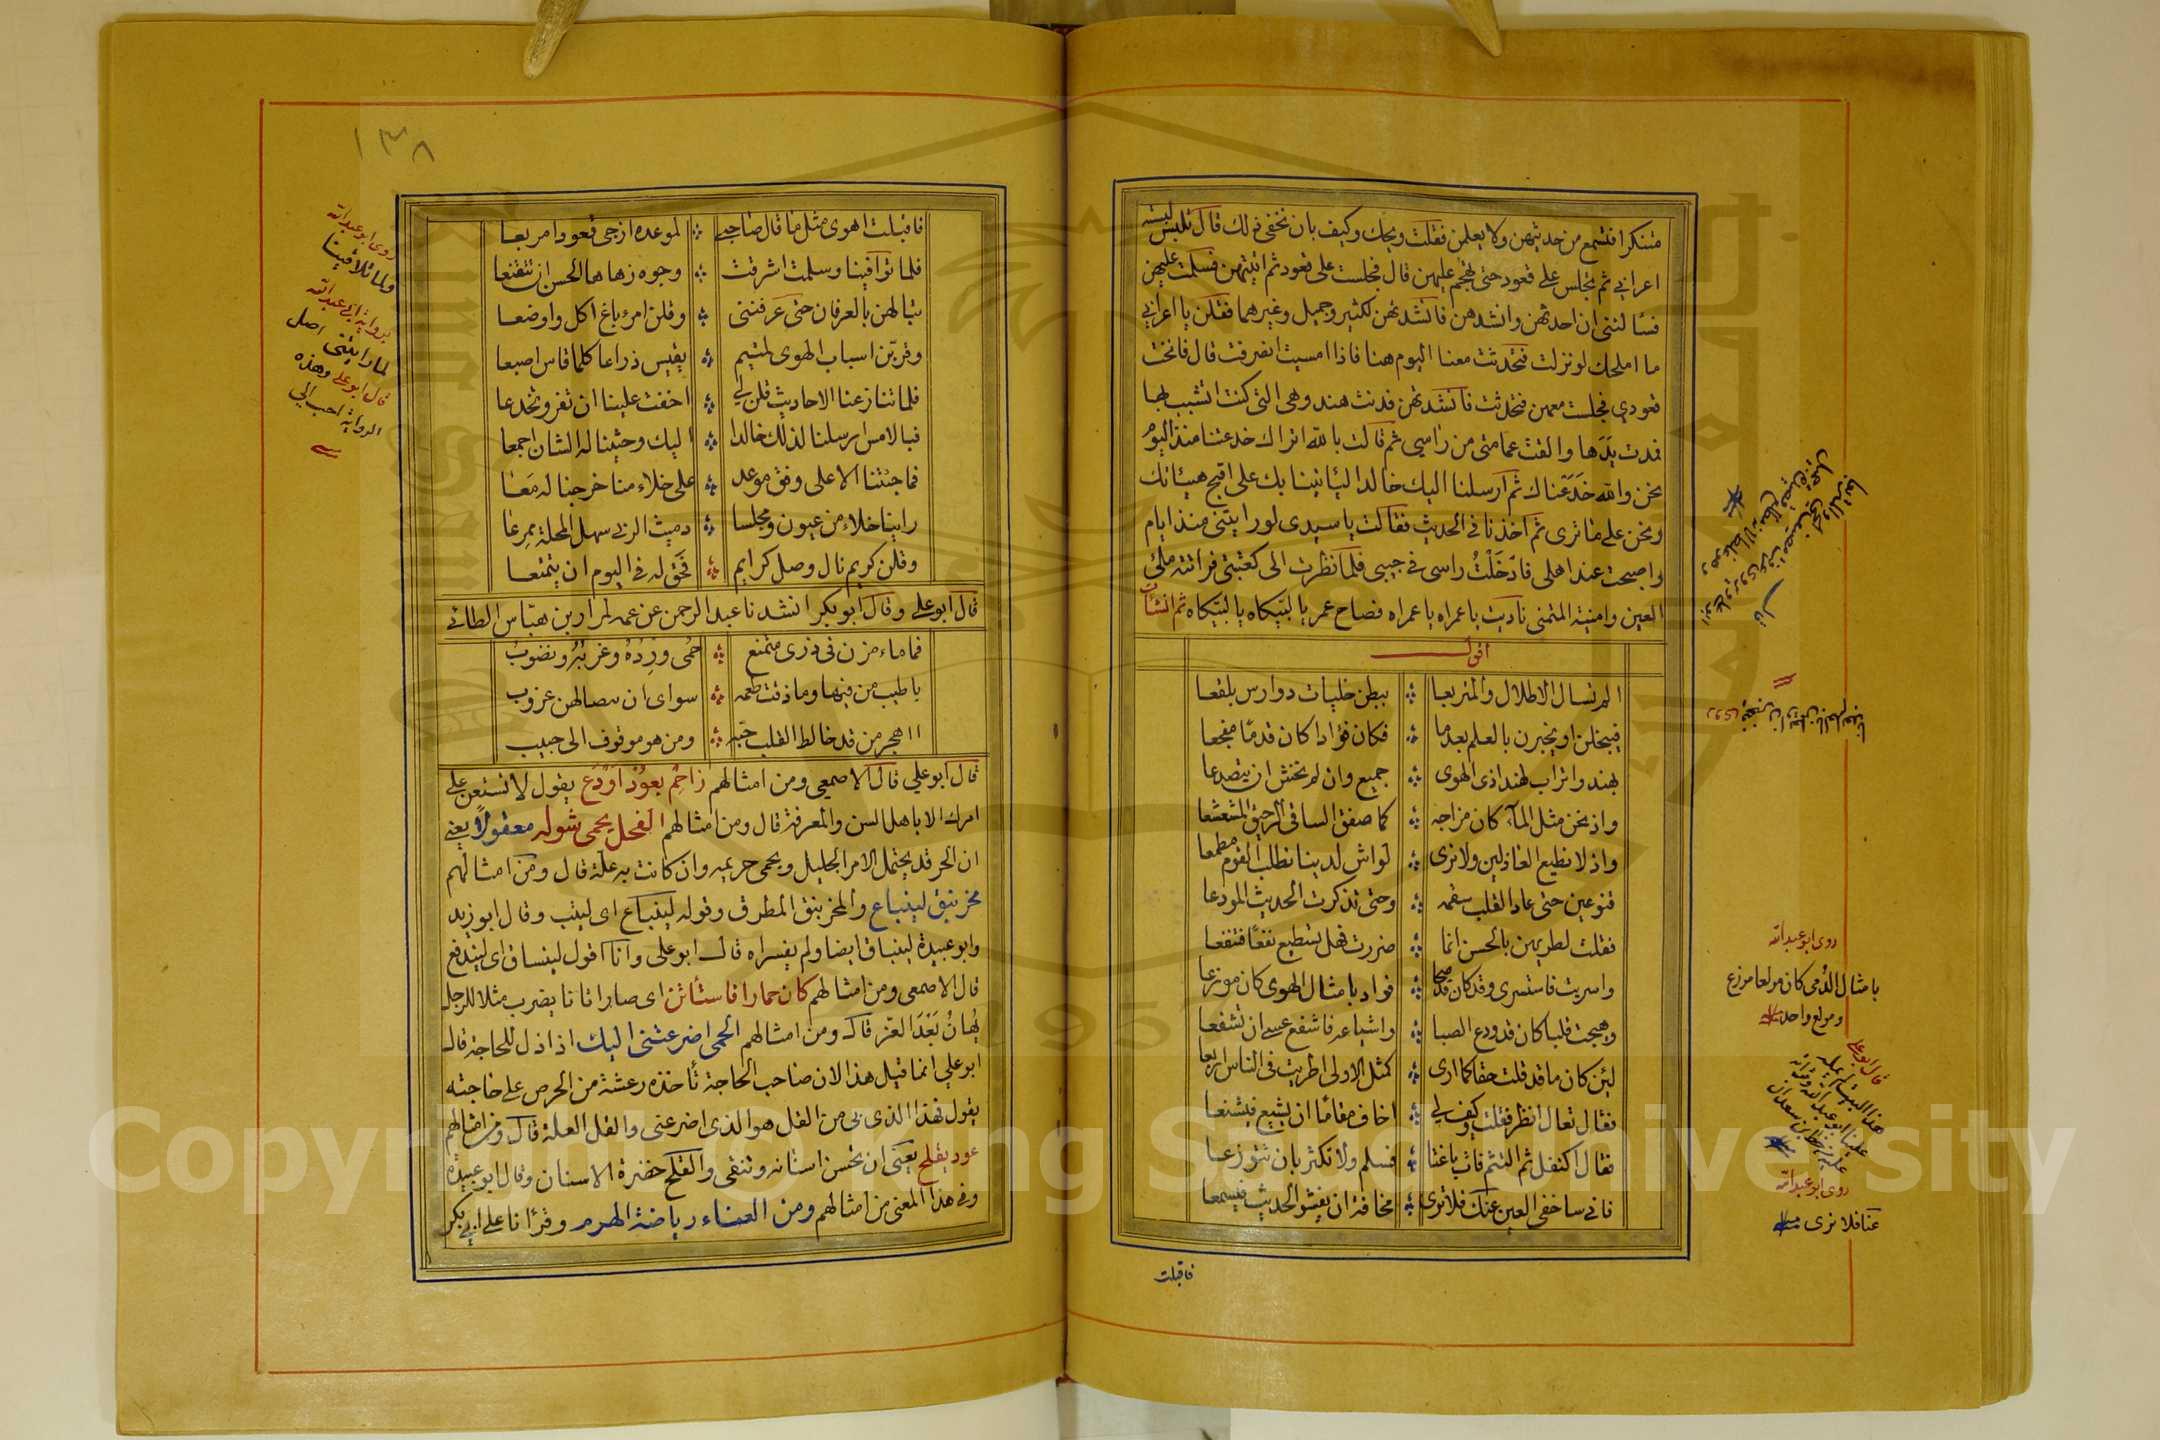 متنكرا فتسمع من حديثهن ولا يعلمن فقلت ويحك وكيف بان تخفى ذلك قال تلبس لبسة
اعرابي ثم تجلس على قعود حتى تهجم عليهن قال فجلست على قعود ثم اتيتهن فسلمت عليهن
فسألنني ان احدثهن وانشدهن فانشدتهن لكثير وجميل وغيرهما فقلن يا اعرابي
ما املحك لو نزلت فتحدثت معنا اليوم هنا فاذا امسيت انصرفت قال فانخت
قعودي فجلست معهن فتحدثت فانشدتهن فدنت هند وهي التي كنت اتشبب بها
فمدت يدها والقت عمامتي من راسي ثم قالت بالله اتراك خدعتنا منذ اليوم
نحن والله خدعناك ثم ارسلنا اليك خالدا ليأتينا بك على اقبح هيئاتك
ونحن على ما ترى ثم اخذنا في الحديث فقالت يا سيدي لو رايتني منذ ايام
واصبحت عند اهلي فادخلت راسي في جيبي فلما نظرت الى كعثبي فراتته ملئ
العين وامنية المتمني ناديت يا عمراه يا عمراه فصاح عمر يا لبيكاه يا لبيكاه ثم انشأت
اقول
الم تسال الاطلال والمتربعا ببطن حليات دوارس بلقعا
فيبخلن او يخبرن بالعلم بعدما فكان فؤادا كان قدما مفجعا
بهند واتراب لهند اذ الهوى جميع وان لم نخش ان يتصدعا
واذ نحن مثل المآء كان مزاجه كما صفق الساقي الرحيق المشعشعا
واذ لا نطيع العاذلين ولا نرى لواش لدينا نطلب القوم مطمعا
فنوعين حتى عاد القلب سقمه وحتى تذكرت الحديث المودعا
فقلت لمطريهن بالحسن انما ضررت فهل تسطيع نفعًا فتنفعا
واسريت فاستسرى وقد كان قد صحا فواد بامثال الهوى كان موزعا
وهيجت قلبا كان قد ودع الصبا واشياعه فاشفع عسى ان تشفعا
لئن كان ما قد قلت حقا كما ارى كمثل الاولى اطريت في الناس اربعا
فقال تعال انظر فقلت وكيف لي اخاف مقامًا ان يشيع فيشنعا
فقال اكتفل ثم التثم فات باغيا فسلم ولا تكثر بان تتوزعا
فاني ساخفي العين عنك فلا ترى مخافة ان يفشو الحديث فيسمعا
فاقبلت
روى ابو عبد الله
بامثال الدمى كان مولعا موزع
ومولع واحد
قال ابو علي
هذا البيت
روى ابو عبد الله
عنا فلا نرى
١٣٨
فاقبلت اهوى مثل ما قال صاحبي لموعده ازجي قعودا مربعا
فلما تواقينا وسلمت اشرقت وجوه زهاها الحسن ان تتقنعا
تبالهن بالعرفان حتى عرفنني وقلن امرؤ باغ اكل واوضعا
وقربن اسباب الهوى لمتيم يقيس ذراعا كلما قاس اصبعا
فلما تنازعنا الاحاديث قلن لي اخفت علينا ان تغر وتخدعا
فبالامس ارسلنا لذلك خالدا اليك وحثينا له الشان اجمعا
فما جئتنا الا على وفق موعد على خلاء منا خرجنا له معا
راينا خلاء من عيون ومجلسا دميث الربى سهل المحلة ممرعا
وقلن كريم نال وصل كرايم فحق له في اليوم ان يتمتعا
قال ابو علي وقال ابو بكر انشدنا عبد الرحمن عن عمه لمرار بن هباس الطائي
فما ماء مزن في ذرى متمنع حمى ورده وعر به ونضوب
باطيب من فيها وما ذقت طعمه سواى ان عزوب
ااهجر من قد خالط القلب حبه ومن هو موثوق الى حبيب
قال ابو علي قال الاصمعي ومن امثالهم زاحم بعود او دع يقول لا تستعن على
امرك الا باهل السن والمعرفة قال ومن امثالهم الفحل يحمي شوله معقولا يعني
ان الحر قد يحتمل الامر الجليل ويحمي حريمه وان كانت به علة قال ومن امثالهم
مخرنبق لينباع والمخرنبق المطرق وقوله لينباع اى ليثب وقال ابو زيد
وابو عبيدة لينباق ايضا ولم يفسراه قال ابو علي وانا اقول لينساق اى ليندفع
قال الاصمعي ومن امثالهم كان حمارا فاستأتن اى صار اتانا يضرب مثلا للرجل
يهان بعد العز قال ومن امثالهم الحمى اضرعتني اليك اذا ذل للحاجة قال
ابو علي انما قيل هذا لان صاحب الحاجة تأخذه رعشة من الحرص على حاجته
يقول فهذا الذي بي من القل هو الذى اضرعني والقل العلة قال ومن امثالهم
عود يقلح يعنى ان تحسن اسنانه وتنقى والقلح خضرة الاسنان وقال ابو عبيدة
وفي هذا المعنى من امثالهم ومن العناء رياضة الهرم وقرانا على ابي بكر
روى ابو عبد الله
ولما تلاقينا
برواية ابي عبد الله
لما رايتني اصل
قال ابو علي وهذه
الرواية احب الي
Copyright © King Saud University